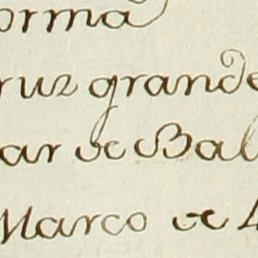 orma
ruz grande
ar de Bal
Marco de